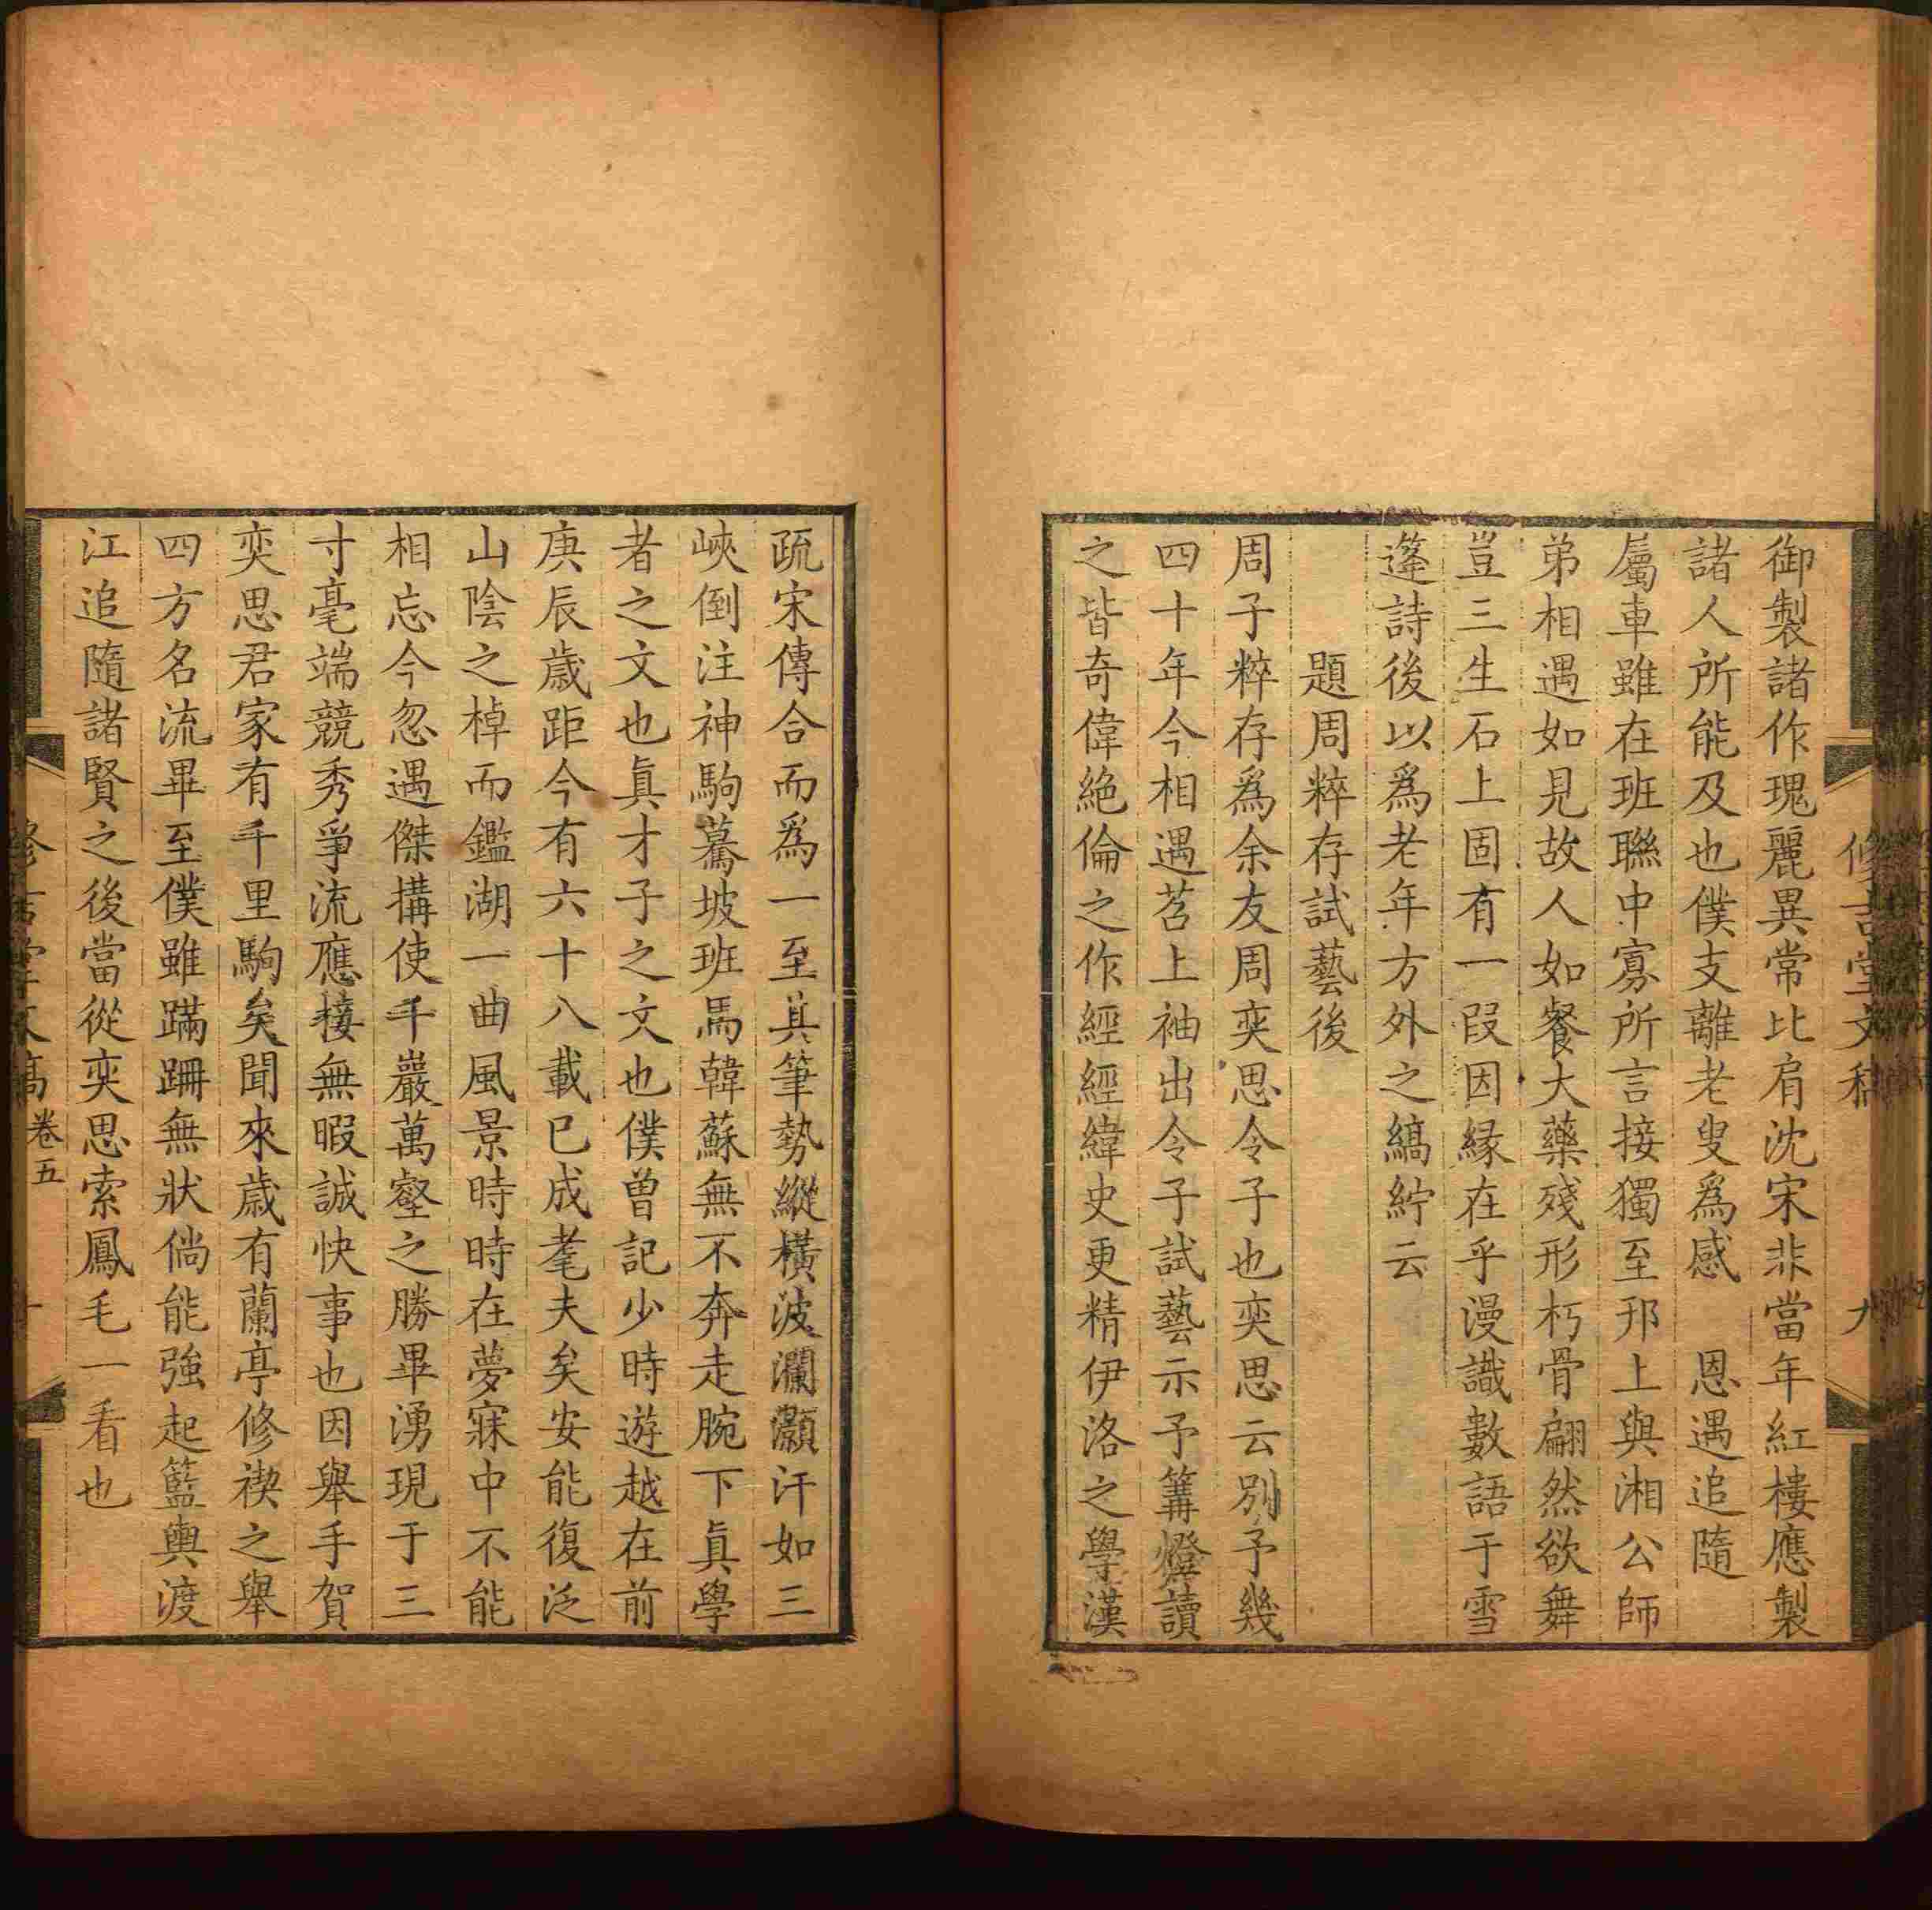 御製諸作瑰麗異常比肩沈宋非當年紅樓應製
諸人所能及也僕支離老叟爲感　恩遇追隨
屬車雖在班聯中寡所言接獨至邗上與湘公師
弟相遇如見故人如餐大藥殘形朽骨翩然欲舞
豈三生石上固有一段因緣在乎漫識數語于雪
篷詩後以爲老年方外之縞紵云
題周粹存試藝後
周子粹存爲余友周奕思令子也奕思云別予幾
四十年今相遇苕上袖出令子試藝示予篝燈讀
之皆奇偉絶倫之作經經緯史更精伊洛之學漢
疏宋傳合而爲一至其筆勢縱橫波瀾灝汗如三
峽倒注神駒驀坡班馬韓蘇無不奔走腕下眞學
者之文也眞才子之文也僕曾記少時遊越在前
庚辰歲距今有六十八載已成耄夫矣安能復泛
山陰之棹而鑑湖一曲風景時時在夢寐中不能
相忘今忽遇傑搆使千巖萬壑之勝畢湧現于三
寸毫端競秀爭流應接無暇誠快事也因舉手賀
奕思君家有千里駒矣聞來歲有蘭亭修禊之舉
四方名流畢至僕雖蹣跚無狀倘能強起籃輿渡
江追隨諸賢之後當從奕思索鳳毛一看也
卷五